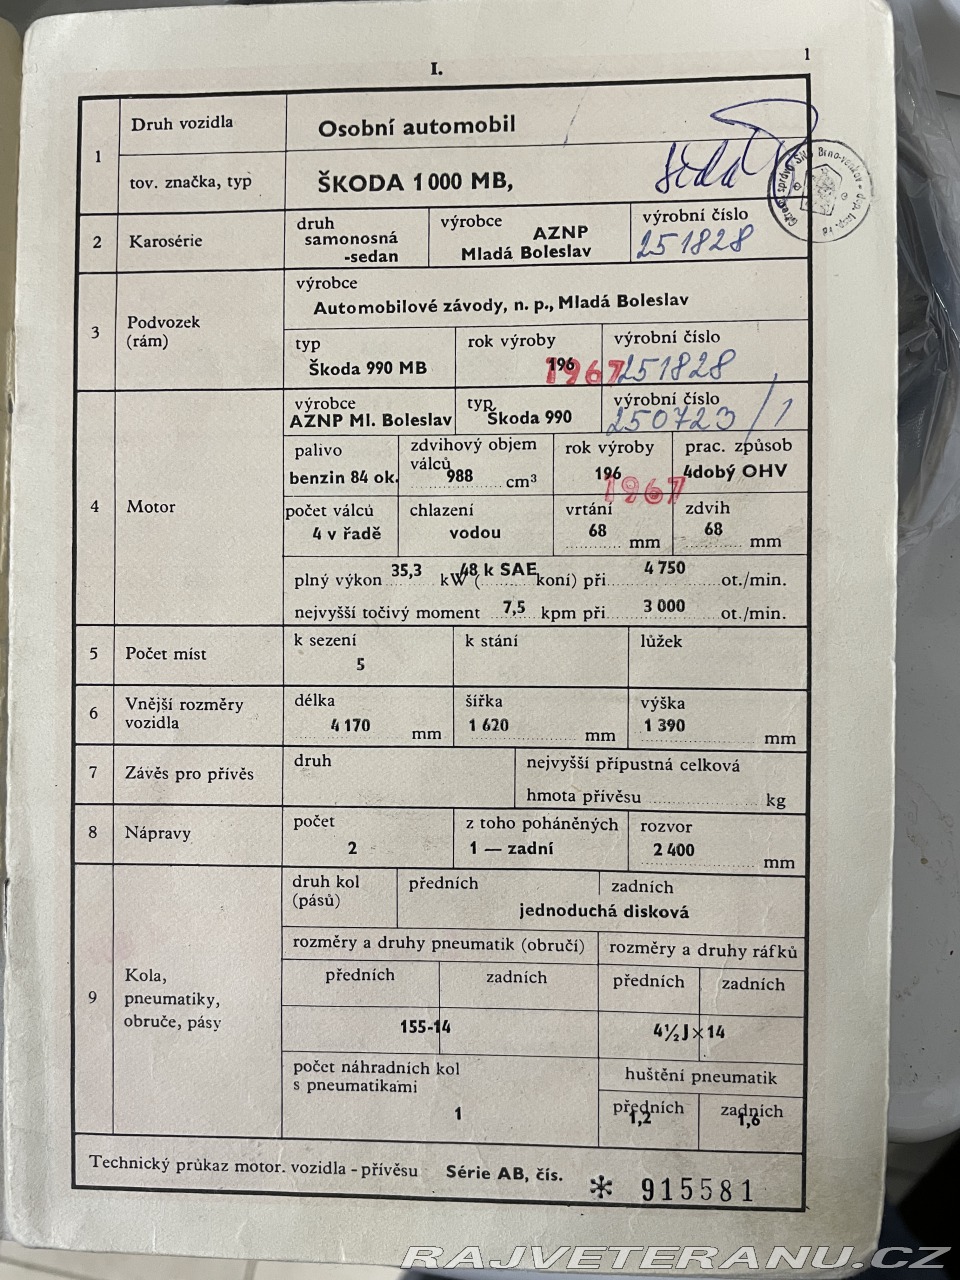 I.
1
1
Druh vozidla
Osobní automobil
tov. značka, typ
ŠKODA 1000 MB,
šedá
2
Karosérie
druh
samonosná
-sedan
výrobce
AZNP
Mladá Boleslav
výrobní číslo
251828
3
Podvozek
(rám)
výrobce
Automobilové závody, n. p., Mladá Boleslav
typ
Škoda 990 MB
rok výroby
196
1967
výrobní číslo
251828
4
Motor
výrobce
AZNP Ml. Boleslav
typ
Škoda 990
výrobní číslo
250723/1
palivo
benzin 84 ok.
zdvihový objem
válců
988 cm³
rok výroby
196
1967
prac. způsob
4dobý OHV
počet válců
4 v řadě
chlazení
vodou
vrtání
68
mm
zdvih
68
mm
plný výkon 35,3 kW (48 k SAE koní) při 4 750 ot./min.
nejvyšší točivý moment 7,5 kpm při 3 000 ot./min.
5
Počet míst
k sezení
5
k stání
lůžek
6
Vnější rozměry
vozidla
délka
4 170 mm
šířka
1 620 mm
výška
1 390 mm
7
Závěs pro přívěs
druh
nejvyšší přípustná celková
hmota přívěsu kg
8
Nápravy
počet
2
z toho poháněných
1 — zadní
rozvor
2 400 mm
9
Kola,
pneumatiky,
obruče, pásy
druh kol
(pásů)
předních
zadních
jednoduchá disková
rozměry a druhy pneumatik (obručí)
rozměry a druhy ráfků
předních
zadních
předních
zadních
155-14
4½J×14
počet náhradních kol
s pneumatikami
1
huštění pneumatik
předních
1,2
zadních
1,6
Technický průkaz motor. vozidla - přívěsu Série AB, čís. * 915581
RAJVETERANU.CZ